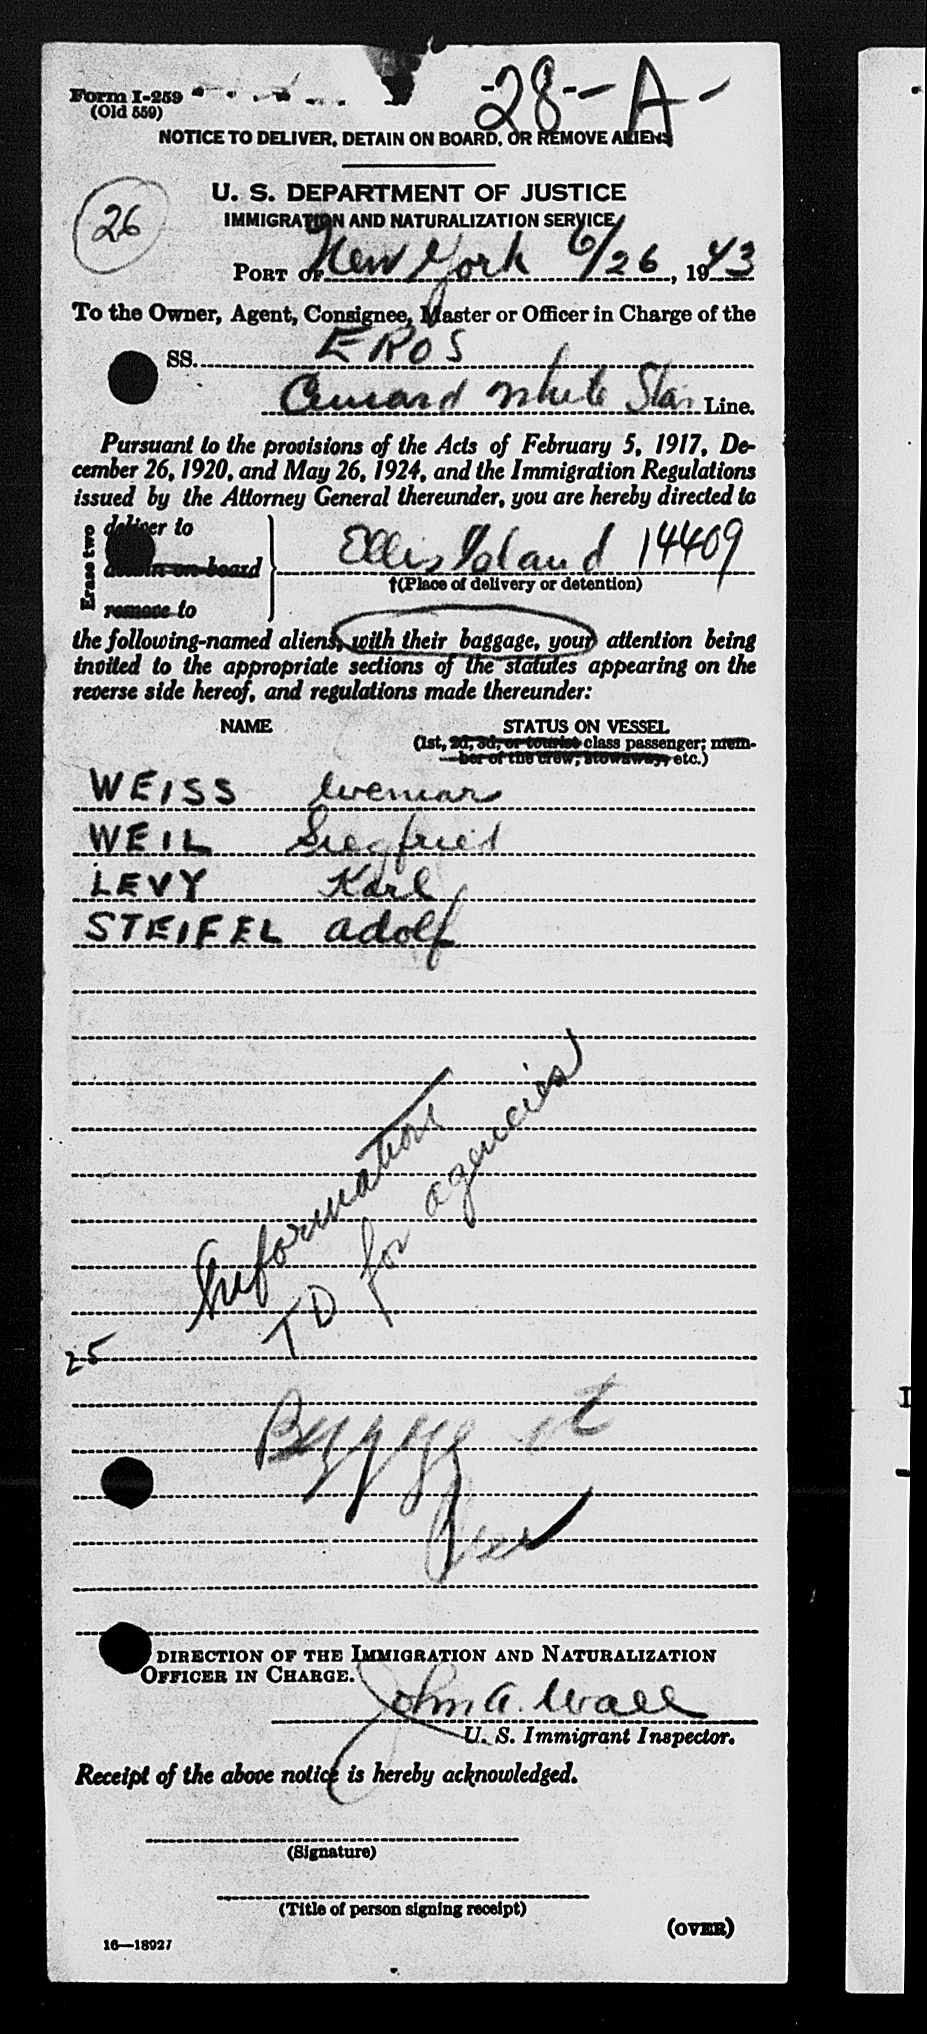 28-A-
Form I-259
(Old 559)
NOTICE TO DELIVER, DETAIN ON BOARD, OR REMOVE ALIENS
U. S. DEPARTMENT OF JUSTICE
26
IMMIGRATION AND NATURALIZATION SERVICE
PORT OF New York 6/26, 1943
To the Owner, Agent, Consignee, Master or Officer in Charge of the
SS. EROS
Cunard White Star Line.
Pursuant to the provisions of the Acts of February 5, 1917, De-
cember 26, 1920, and May 26, 1924, and the Immigration Regulations
issued by the Attorney General thereunder, you are hereby directed to
Erase two
deliver to
on board
remove to
Ellis Island 14409
†(Place of delivery or detention)
the following-named aliens, with their baggage, your attention being
invited to the appropriate sections of the statutes appearing on the
reverse side hereof, and regulations made thereunder:
NAME STATUS ON VESSEL
(1st, 2d, 3d, or tourist class passenger; mem-
ber of the crew, stowaway, etc.)
WEISS Wernar
WEIL Siegfried
LEVY Karl
STEIFEL Adolf
Information
TD for agencies
25
DIRECTION OF THE IMMIGRATION AND NATURALIZATION
OFFICER IN CHARGE.
John A. Wall
U. S. Immigrant Inspector.
Receipt of the above notice is hereby acknowledged.
(Signature)
(Title of person signing receipt)
(OVER)
16—18927